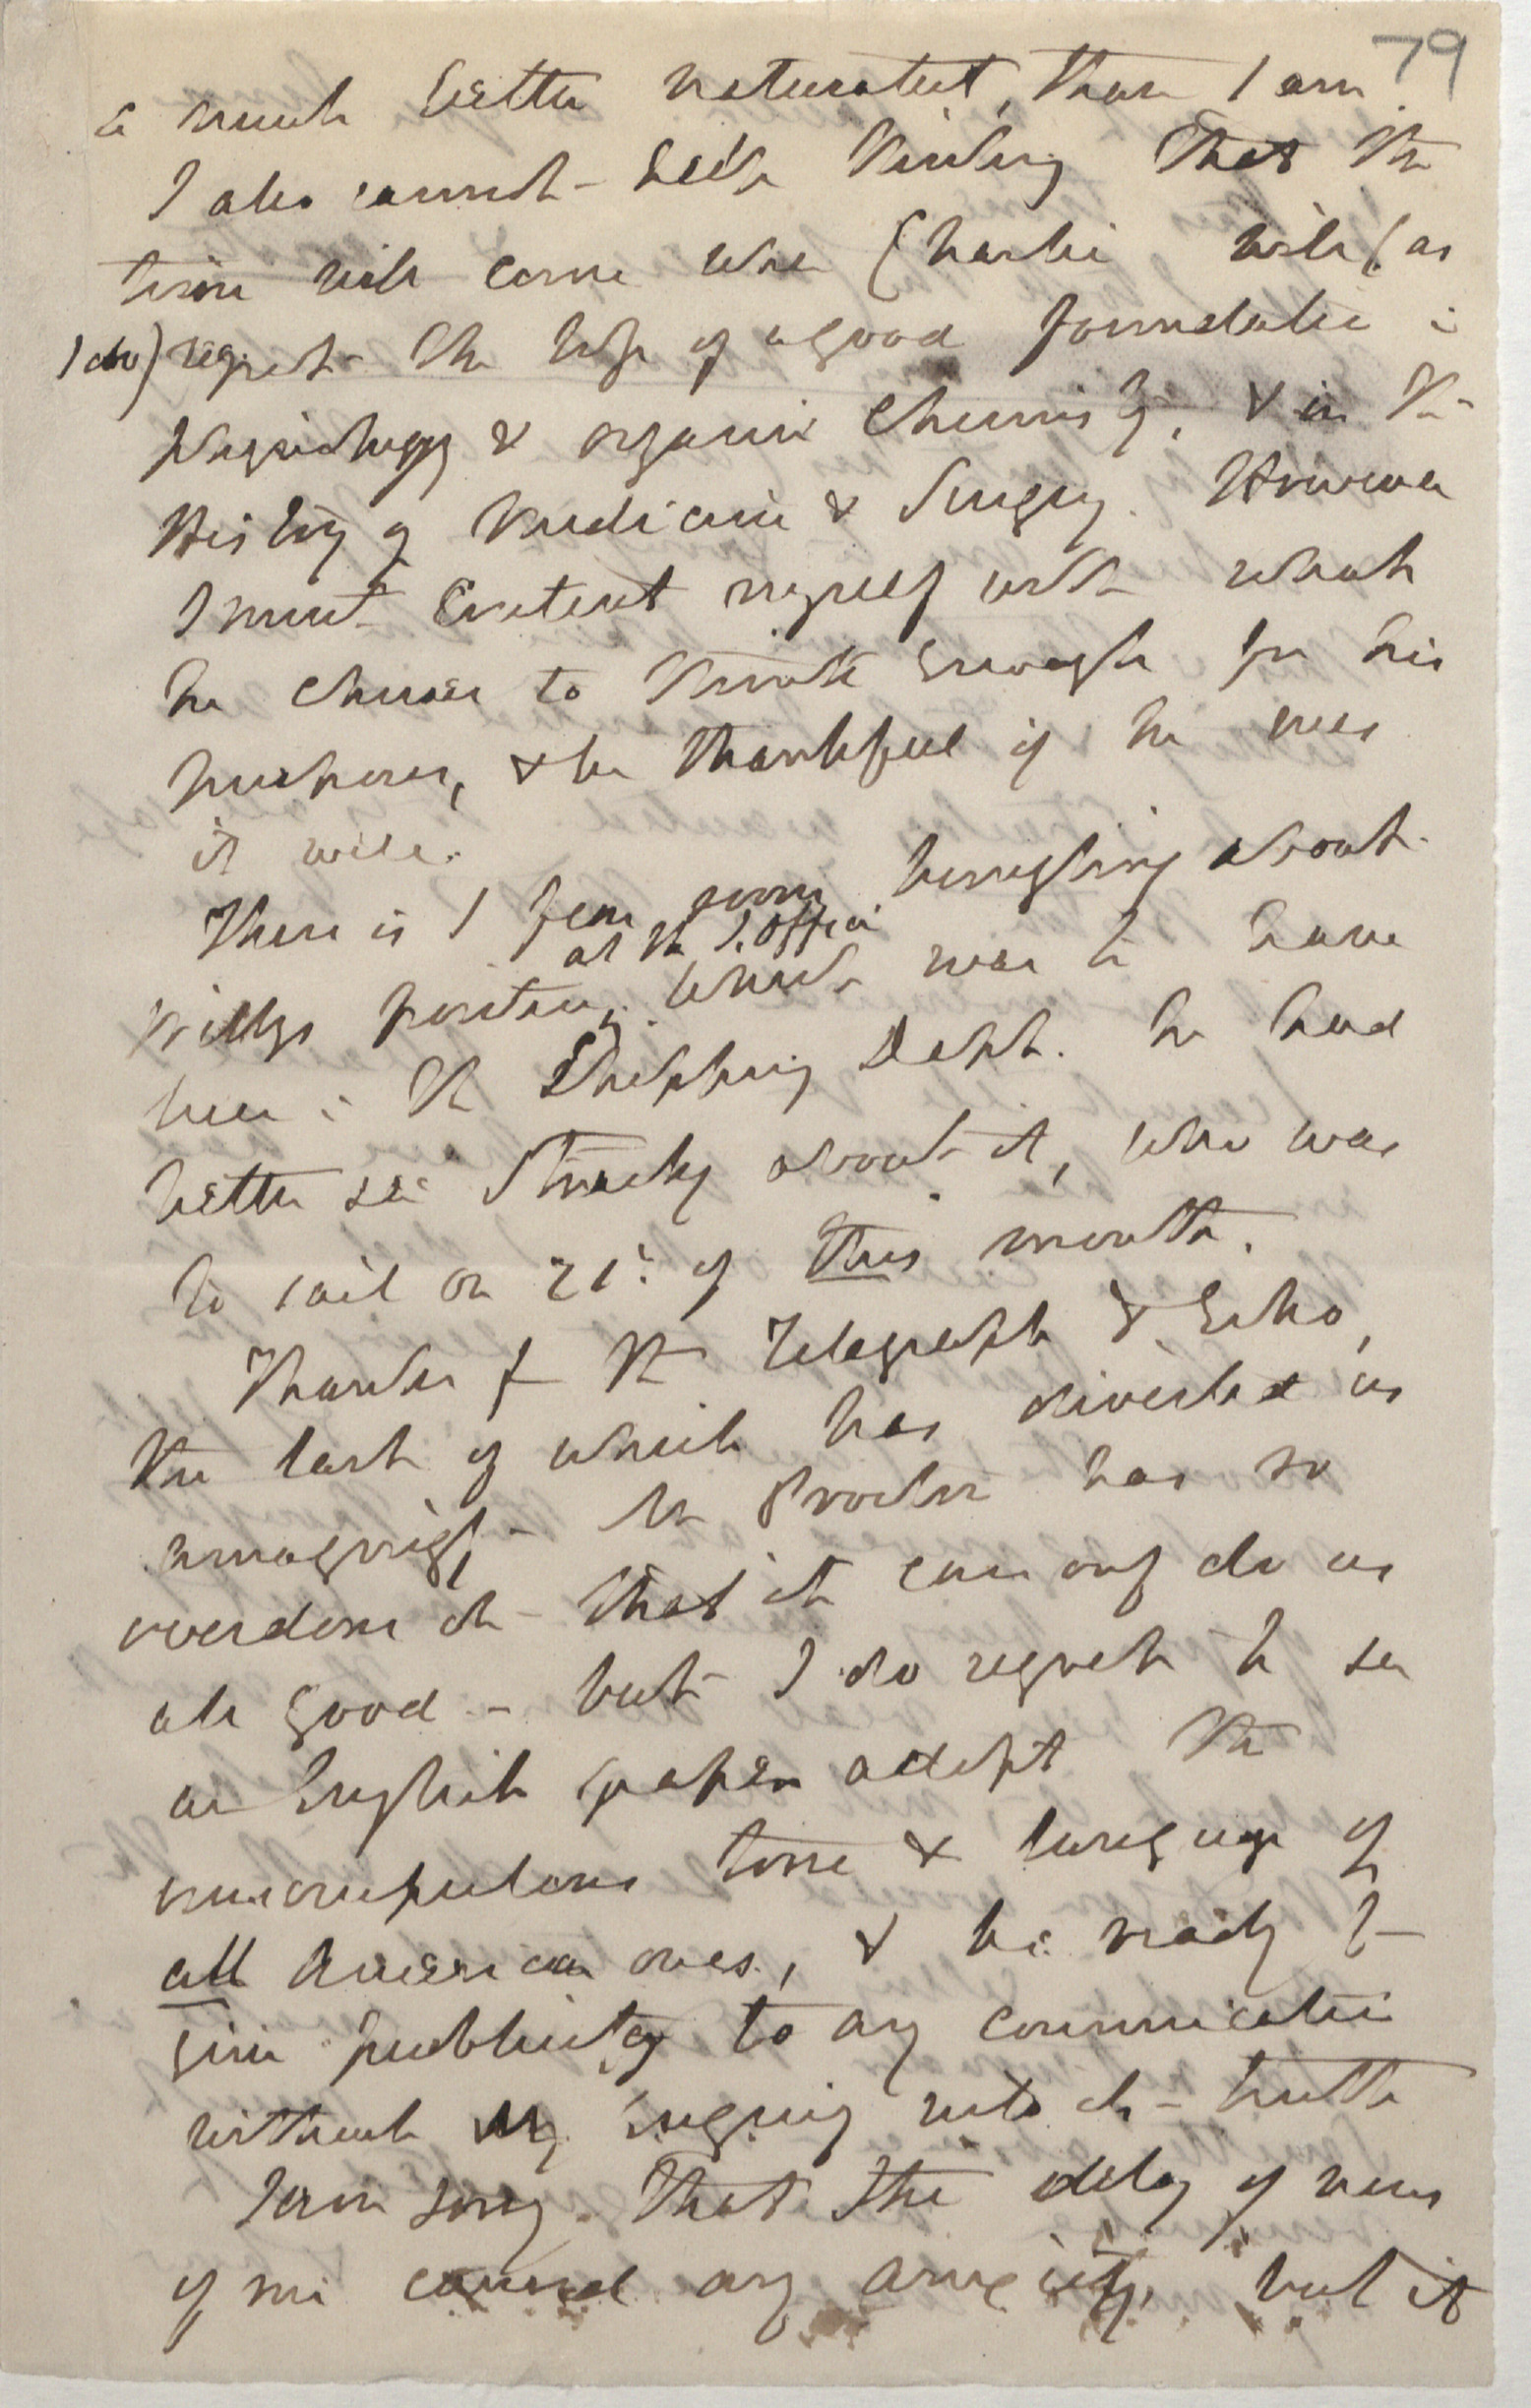 79
a much better naturalist, than I am.
I also cannot help thinking that the
time will come when Charlie will (as
I do) regret the loss of a good foundation in
Physiology & organic Chemistry, & in the
History of Medicine & Surgery. However
I must content myself with what
he chuses to think enough for his
purposes, & be thankful if he uses
it well.
There is I fear some bungling about
at the I. Office
Willys position, which was to have
been in the Shipping Dept. he had
better see Strachey about it, who was
to sail on 21st. of this month.
Thanks for the Telegraph & Echo,
the last of which has diverted us
amazingly — Mr Proctor has so
overdone it that it can only do us
all good — but I do regret to see
an English paper adopt the
unscrupulous tone & language of
all American ones, & be ready to
give publicity to any communication
without any inquiry into its truth
I am sorry that the delay of news
of me caused any anxiety, but it